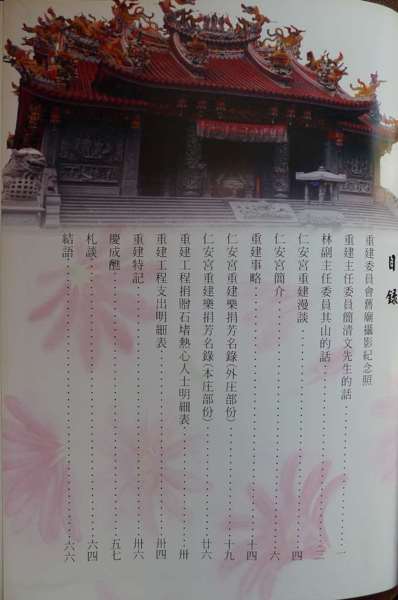 目錄
重建委員會舊廟攝影紀念照
重建主任委員簡清文先生的話……一
林副主任委員其山的話……二
仁安宮重建漫談……四
仁安宮簡介……六
重建事略……十四
仁安宮重建樂捐芳名錄(外庄部份)……十九
仁安宮重建樂捐芳名錄(本庄部份)……廿六
重建工程捐贈石堵熱心人士明細表……卅
重建工程支出明細表……卅四
重建特記……卅六
慶成醮……五七
札談……六四
結語……六六